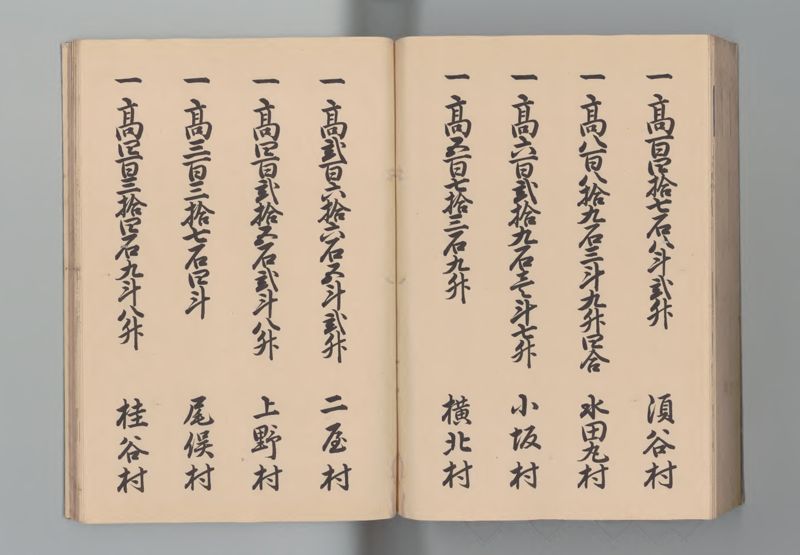 一 高百四拾七石八斗弐升 須谷村
一 高八百八拾九石三斗九升四合 水田丸村
一 高六百弐拾九石壱斗七升 小坂村
一 高五百七拾三石九升 横北村
一 高弐百六拾六石五斗弐升 二屋村
一 高四百弐拾五石弐斗八升 上野村
一 高三百二拾七石四斗 尾俣村
一 高四百三拾四石九斗八升 桂谷村